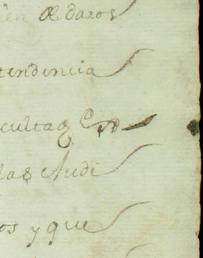 en de daros
tendencia
cultas Cro
las Audi
os y que